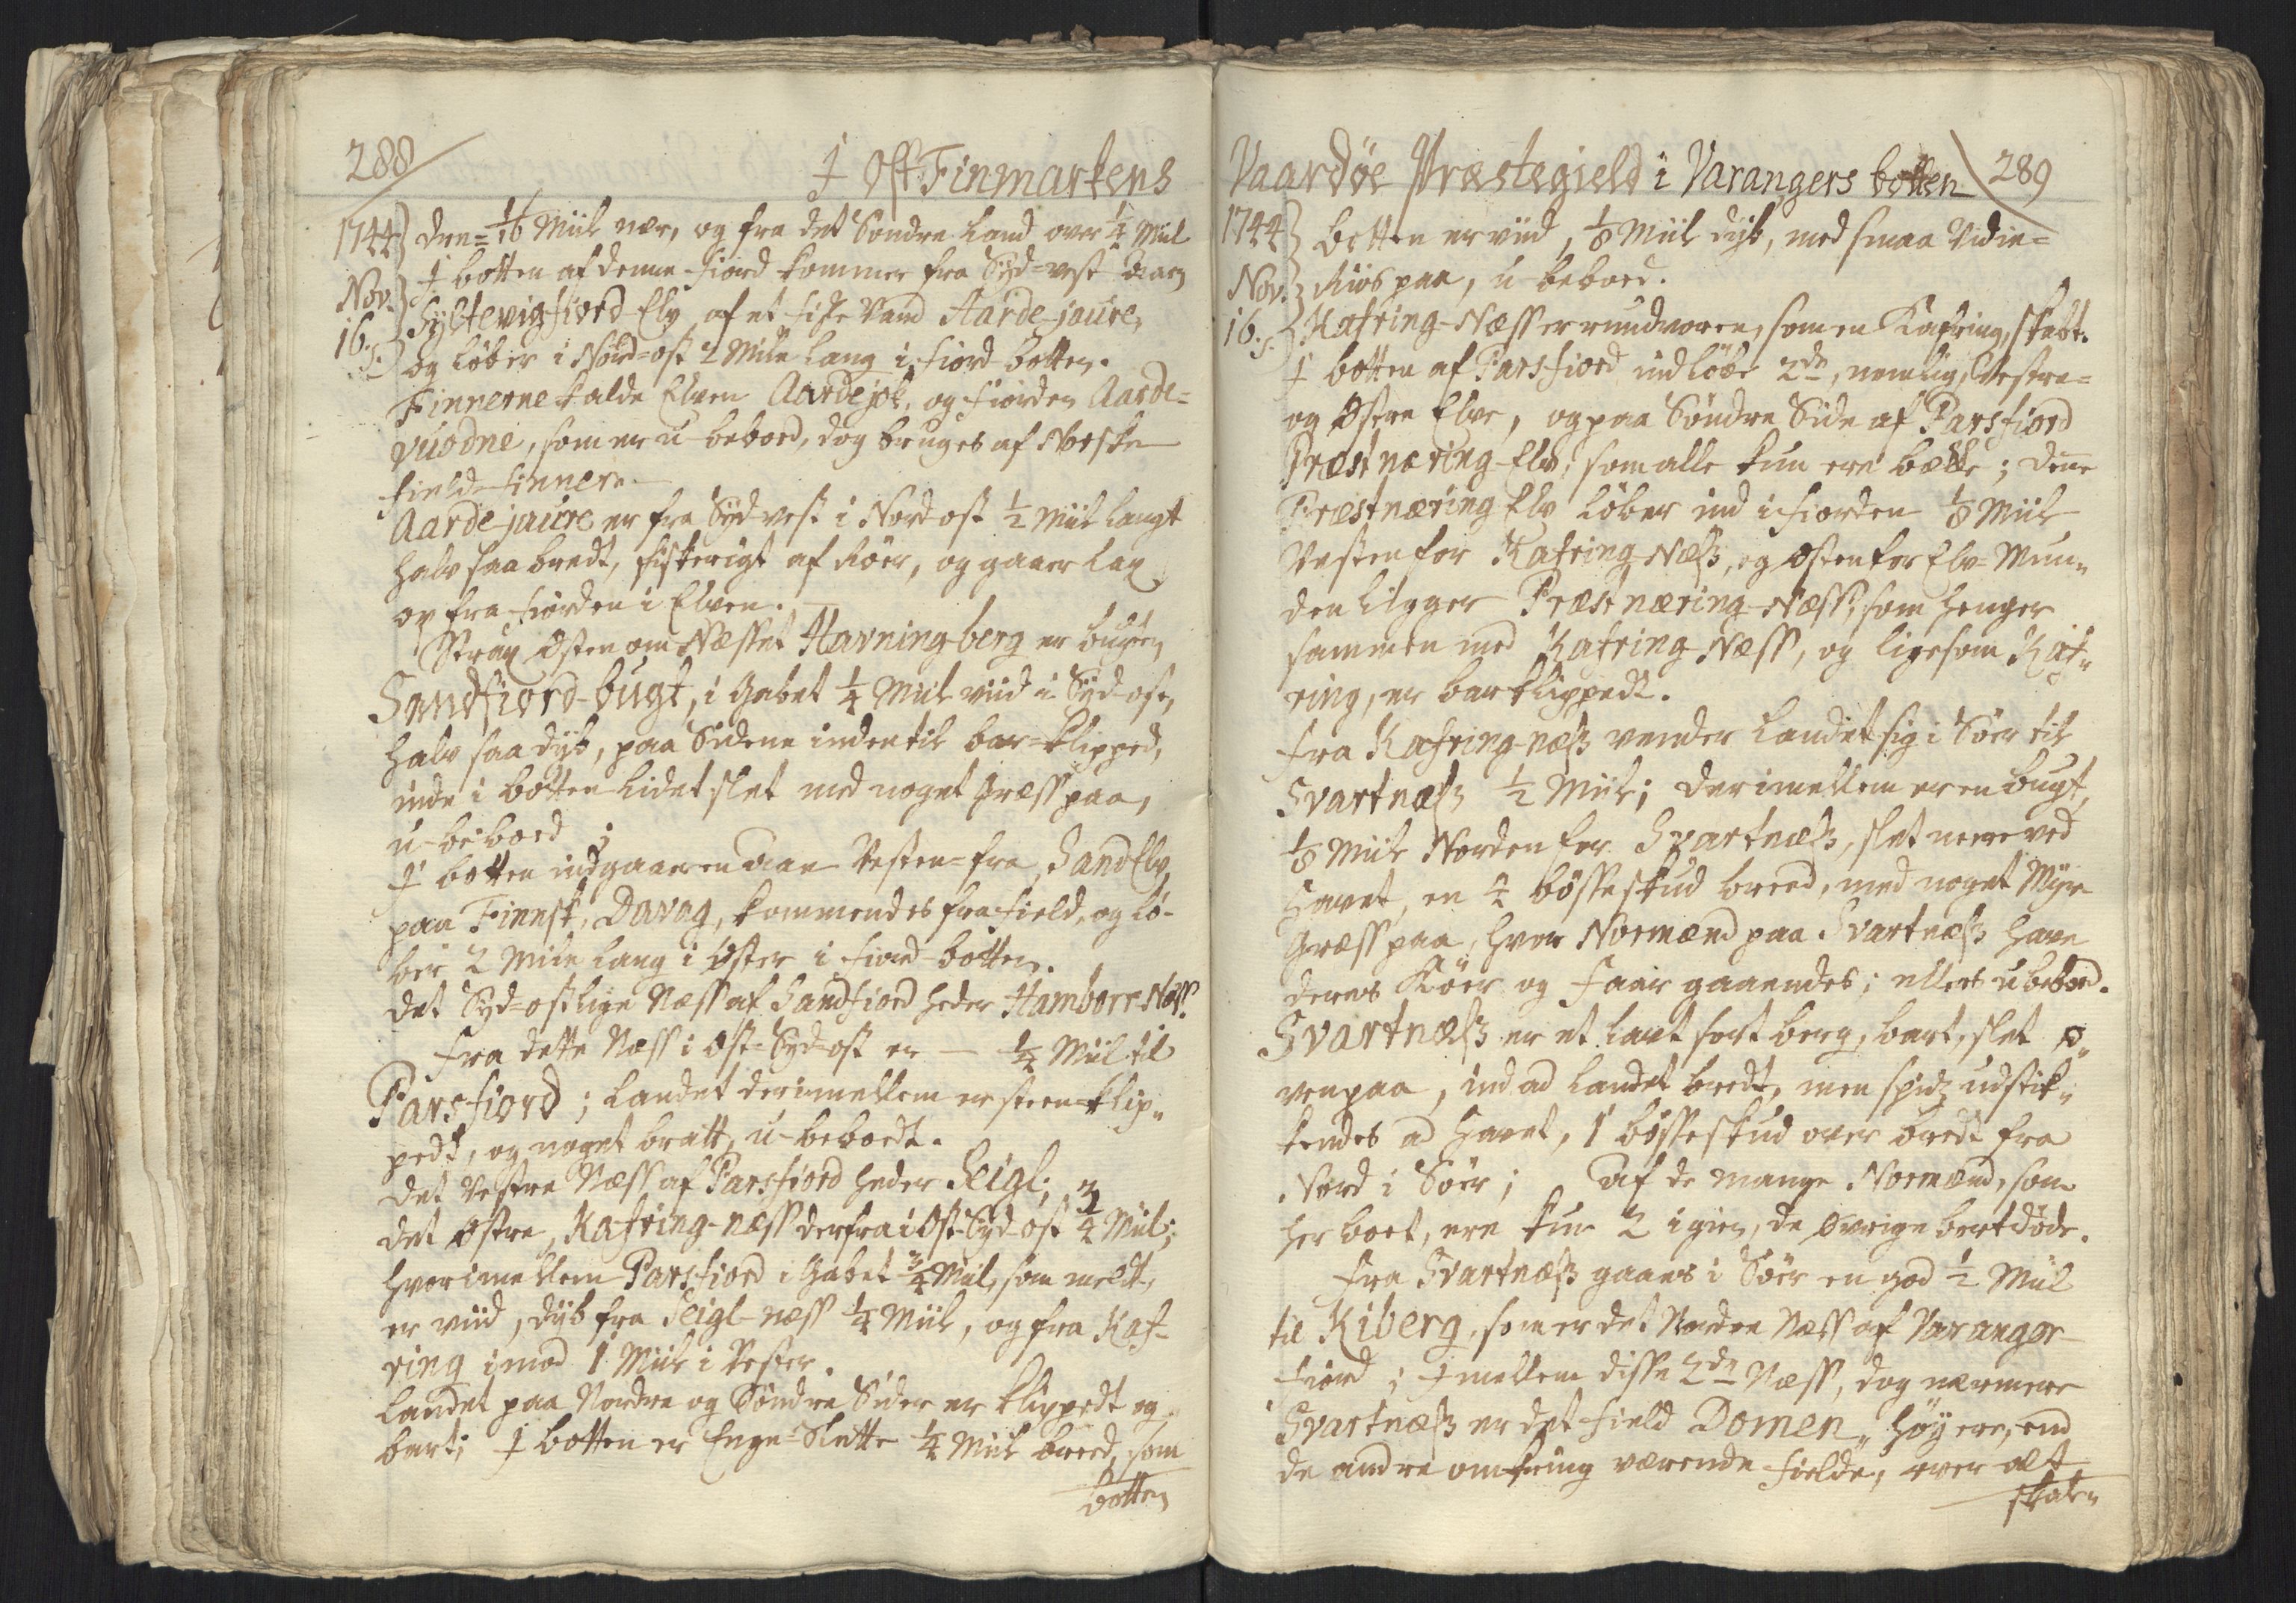 288
I Ost-Finmarkens
1744) den = 1/16 Miil nær, og fra det Søndre Land over 1/4 Miil
I botten af denne fiord kommer fra Syd-vest
Nov. Syltevigfiord Elv af et fiske Vand Aarde-jaure,
16. og løber i Nord-ost 2 Mile lang i fiord-botten.
Finnerne kalde Elven Aardejok, og fiorden Aarde-
vuodne, som er u-beboed, dog bruges af Norske
field-finner.
Aardejaure er fra Syd-vest i Nord-ost 1/2 Miil langt
halv saa bredt, fiskerigt af Röer, og gaaer lax
op fra fiorden i Elven.
Strax Østen om Næsset Havningberg er bugten
Sandfiord-bugt, i Gabet 1/4 Miil viid i Syd-ost,
halv saa dyb, paa Siderne inden til bar-klipped,
inde i botten lidet slet med noget Græss paa,
u-beboed;
I botten indgaaer en Aae Vesten-fra, Sand Elv,
paa Finnsk, Davag, kommendes fra field, og lö-
ber 2 Mile lang i Øster i fiord-botten.
Det Syd-ostlige Næss af Sandfiord heder Hambore Næss.
Fra dette Næss i Ost-Syd-ost er — 1/4 Miil til
Parsfiord; Landet derimellem er steen-klip-
pedt, og noget bratt, u-beboedt.
Det Vestre Næss af Parsfiord heder Seigl;
det Østre, Kafring-næss derfra i Ost-Syd-ost 3/4 Miil;
hvorimellem Parsfiord i Gabet 3/4 Miil, som meldt,
er viid, dyb fra Seigl-næss 1/4 Miil, og fra Kaf-
ring imod 1 Miil i Vester.
Landet paa Nordre og Søndre Sider er klippedt og
bart; I botten er Enge-Slette 1/4 Miil breed, som
botten
Vaardøe Præstegield i Varangers botten 289
1744 botten er viid, 1/8 Miil dyb, med smaa Vidie-
Nov. Riis paa, u-beboed.
16. Kafring-Næss er rundvoren, som en Kafring, skabt.
I botten af Parsfiord indløbe 2de, nemlig, Vestre-
og Østre Elve, og paa Søndre Side af Parsfiord
Præstnæring-Elv, som alle kun ere bække; denne
Præstnæring Elv løber ind i fiorden 1/8 Miil
Vesten for Kafring-Næss, og Østen for Elv-Mun-
den ligger Præstnæring-Næss, som henger
sammen med Kafring-Næss, og ligesom Kaf-
ring, er barklippedt.
Fra Kafring-næss vender Landet sig i Söer til
Svartnæss 1/2 Miil; derimellem er en bugt,
1/8 Miil Norden for Svartnæss, slet neere ved
Havet, en 4 bösseskud breed, med noget Myr-
Græss paa, hvor Normænd paa Svartnæss have
deres Köer og Faar gaaendes; ellers u-beboed.
Svartnæss er et lavt sort berg, bart, slet o-
ven paa, ind ad Landet bredt, men spidz udstik-
kendes ad Havet, 1 bösseskud over bredt fra
Nord i Söer; Af de mange Normænd, som
her boet, ere kun 2 igien, de øvrige bortdøde.
Fra Svartnæss gaaes i Söer en god 1/2 Miil
til Kiberg, som er det Nordre Næss af Varanger-
fiord; Imellem disse 2de Næss, dog nærmere
Svartnæss er det field Domen, höyere, end
de andre omkring værende fielde, over alt